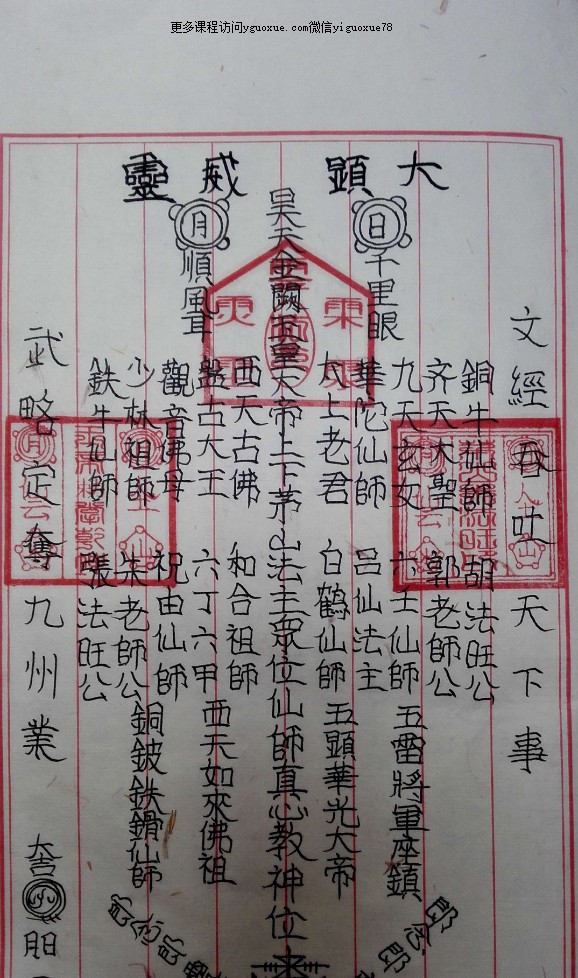 更多课程访问yguoxue.com微信yiguoxue78
大顯威靈
日
月
文經吞吐天下事
銅牛仙師
胡法旺公
齐天大聖
郭老師公
九天玄女
六壬仙師
五雷將軍座鎮
千里眼
華陀仙師
呂仙法主
太上老君
白鶴仙師
五顯華光大帝
昊天金闕玉皇大帝上下茅山法主眾位仙師真心教神位
西天古佛
和合祖師
順風耳
盤古大王
六丁六甲
西天如來佛祖
觀音佛母
祝由仙師
少林祖師
朱老師公
銅鈹鉄鎖仙師
鉄牛仙師
張法旺公
武略定奪九州業